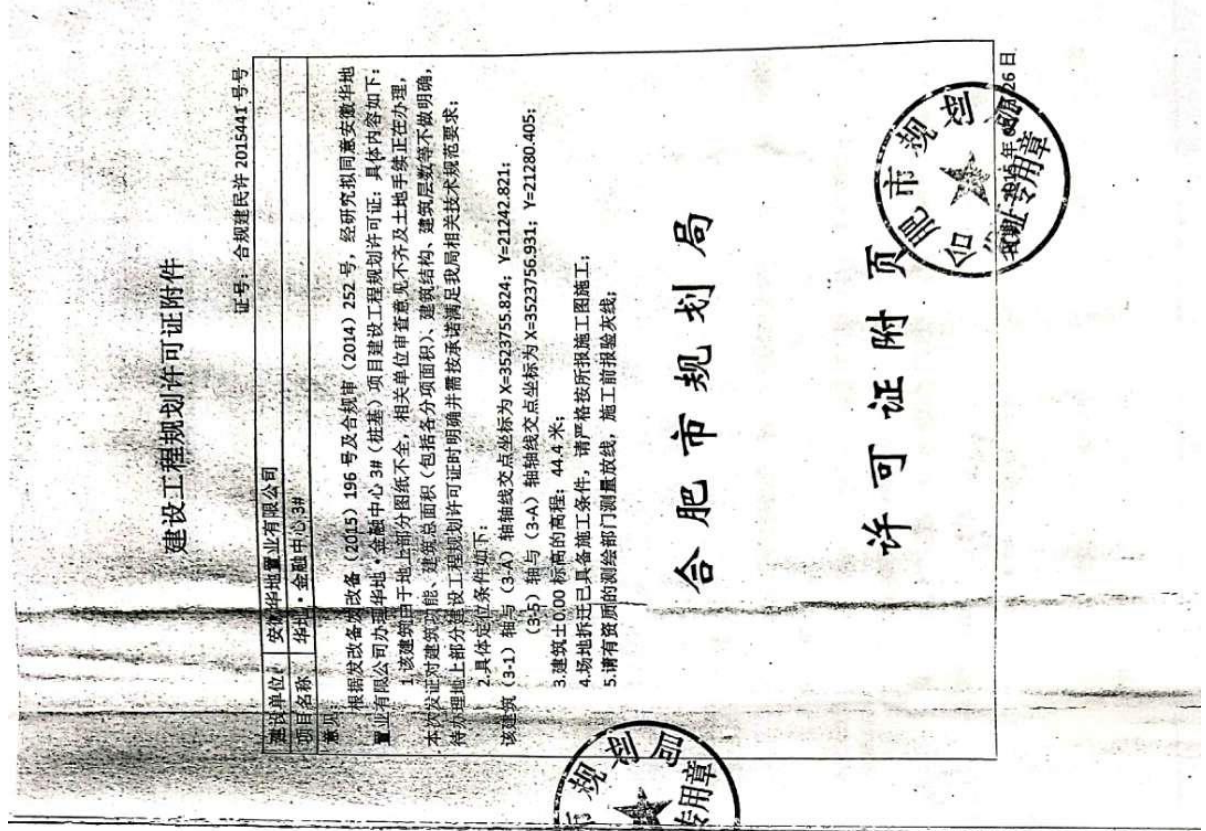 建设工程规划许可证附件
证号：合规建民许 2015441 号号
建设单位 安徽华地置业有限公司
项目名称 华地·金融中心3#
意见：
根据发改备发改备（2015）196 号及合规审（2014）252 号，经研究拟同意安徽华地
置业有限公司办理华地·金融中心 3#（桩基）项目建设工程规划许可证；具体内容如下：
1.该建筑由于地上部分图纸不全，相关单位审查意见不齐及土地手续正在办理，
本次发证对建筑功能、建筑总面积（包括各分项面积）、建筑结构、建筑层数等不做明确，
待办理地上部分建设工程规划许可证时明确并需按承诺满足我局相关技术规范要求；
2.具体定位条件如下：
该建筑（3-1）轴与（3-A）轴轴线交点坐标为 X=3523755.824；Y=21242.821；
（3-5）轴与（3-A）轴轴线交点坐标为 X=3523756.931；Y=21280.405；
3.建筑±0.00 标高的高程：44.4 米；
4.场地拆迁已具备施工条件，请严格按所报施工图施工；
5.请有资质的测绘部门测量放线，施工前报验灰线；
合肥市规划局
许可证附页
合肥市规划局
专用章
26日
市规划局
专用章